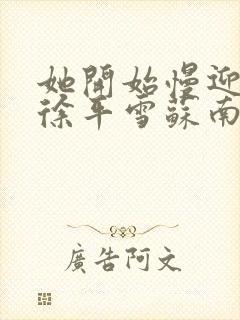 她開始慢迎
徐平雪蘇南
廣告阿文